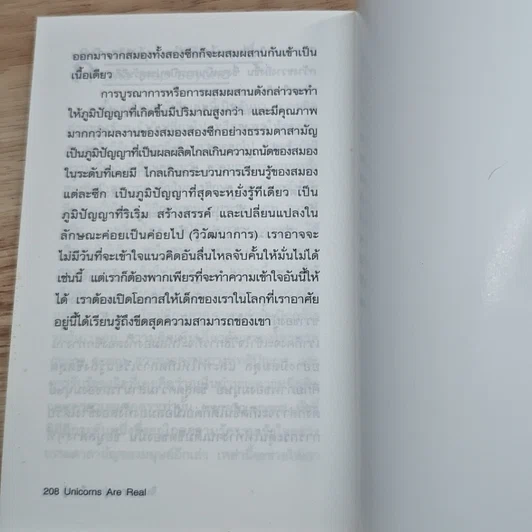 ออกมาจากสมองทั้งสองซีกก็จะผสมผสานกันเข้าเป็น
เนื้อเดียว
การบูรณาการหรือการผสมผสานดังกล่าวจะทำ
ให้ภูมิปัญญาที่เกิดขึ้นมีปริมาณสูงกว่า และมีคุณภาพ
มากกว่าผลงานของสมองสองซีกอย่างธรรมดาสามัญ
เป็นภูมิปัญญาที่เป็นผลผลิตไกลเกินความถนัดของสมอง
ในระดับที่เคยมี ไกลเกินกระบวนการเรียนรู้ของสมอง
แต่ละซีก เป็นภูมิปัญญาที่สุดจะหยั่งรู้ทีเดียว เป็น
ภูมิปัญญาที่ริเริ่ม สร้างสรรค์ และเปลี่ยนแปลงใน
ลักษณะค่อยเป็นค่อยไป (วิวัฒนาการ) เราอาจจะ
ไม่มีวันที่จะเข้าใจแนวคิดอันลื่นไหลจับคั้นให้มั่นไม่ได้
เช่นนี้ แต่เราก็ต้องพากเพียรที่จะทำความเข้าใจอันนี้ให้
ได้ เราต้องเปิดโอกาสให้เด็กของเราในโลกที่เราอาศัย
อยู่นี้ได้เรียนรู้ถึงขีดสุดความสามารถของเขา
208 Unicorns Are Real